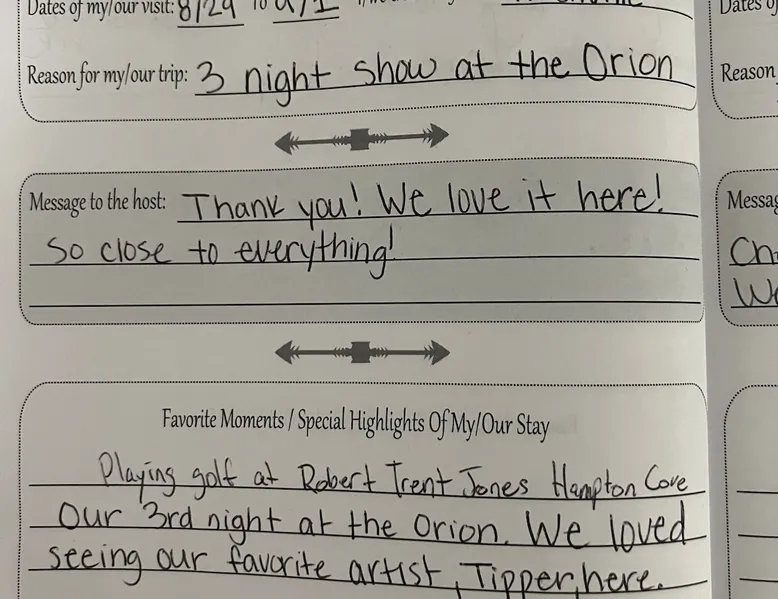 Dates of my/our visit: 8/29 to 9/1
Reason for my/our trip: 3 night show at the Orion
Message to the host: Thank you! We love it here!
So close to everything!
Favorite Moments / Special Highlights Of My/Our Stay
Playing golf at Robert Trent Jones Hampton Cove
Our 3rd night at the Orion. We loved
seeing our favorite artist, Tipper, here.
Dates of
Reason
Messag
Ch
We